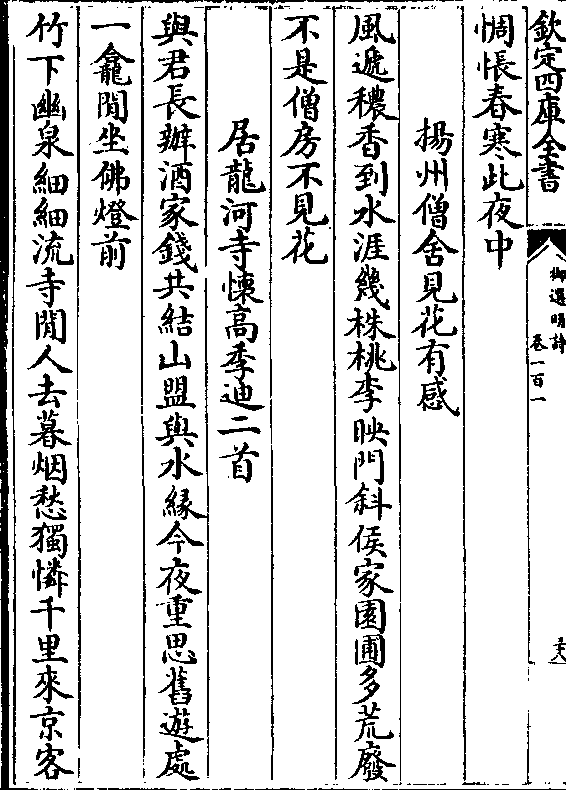 欽定四庫全書
御選明詩
卷一百一
三六
惆悵春寒此夜中
揚州僧舍見花有感
風遞穠香到水涯幾株桃李映門斜侯家園圃多荒廢
不是僧房不見花
居龍河寺懷高季迪二首
與君長辦酒家錢共結山盟與水緣今夜重思舊遊處
一龕閒坐佛燈前
竹下幽泉細細流寺閒人去暮烟愁獨憐千里來京客